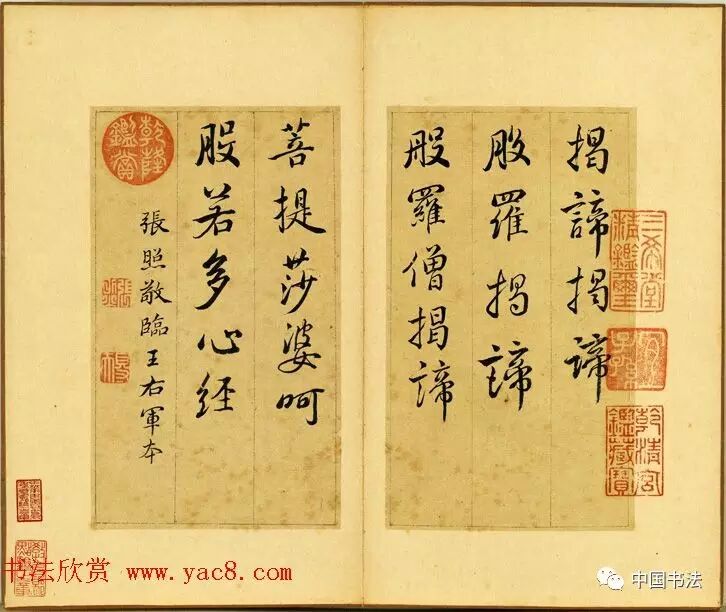 三希堂精鑑璽
宜子孫
乾清宮鑑藏寶
揭諦揭諦
般羅揭諦
般羅僧揭諦
菩提莎婆呵
般若多心経
乾隆鑑賞
張照敬臨王右軍本
书法欣赏 www.yac8.com
中国书法